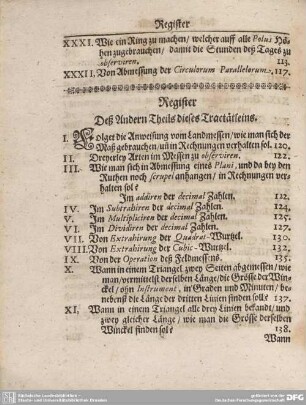 Register
XXXI. Wie ein Ring zu machen / welcher auff alle Polus Hö-
hen zugebrauchen / damit die Stunden deß Tages zu
observiren. 113.
XXXII. Von Abmessung der Circulorum Parallelorum. 117.
Register
Deß Andern Theils dieses Tractätleins.
I. Folget die Anweisung vom Landmessen / wie man sich der
Maß gebrauchen / uñ in Rechnungen verhalten sol. 120.
II. Dreyerley Arten im Messen zu observiren. 122.
III. Wie man sich in Abmessung eines Plani, und da bey den
Ruthen noch scrupel anhangen / in Rechnungen ver-
halten sol?
Im addiren der decimal Zahlen. 112.
IV. Im Subtrahiren der decimal Zahlen. 124.
V. Im Multipliciren der decimal Zahlen. 125.
VI. Im Dividiren der decimal Zahlen. 127.
VII. Von Extrahirung der Quadrat-Wurtzel. 130.
VIII. Von Extrahirung der Cubic-Wurtzel. 132.
IX. Von der Operation deß Feldmessens. 135.
X. Wann in einem Triangel zwey Seiten abgemessen / wie
man / vermittelst derselben Länge / die Grösse der Win-
ckel / ohn Instrument, in Graden und Minuten / be-
nebenst die Länge der dritten Linien finden solle? 137.
XI. Wann in einem Triangel alle drey Linien bekandt / und
zwey gleicher Länge / wie man die Grösse derselben
Winckel finden sol? 138.
Wann